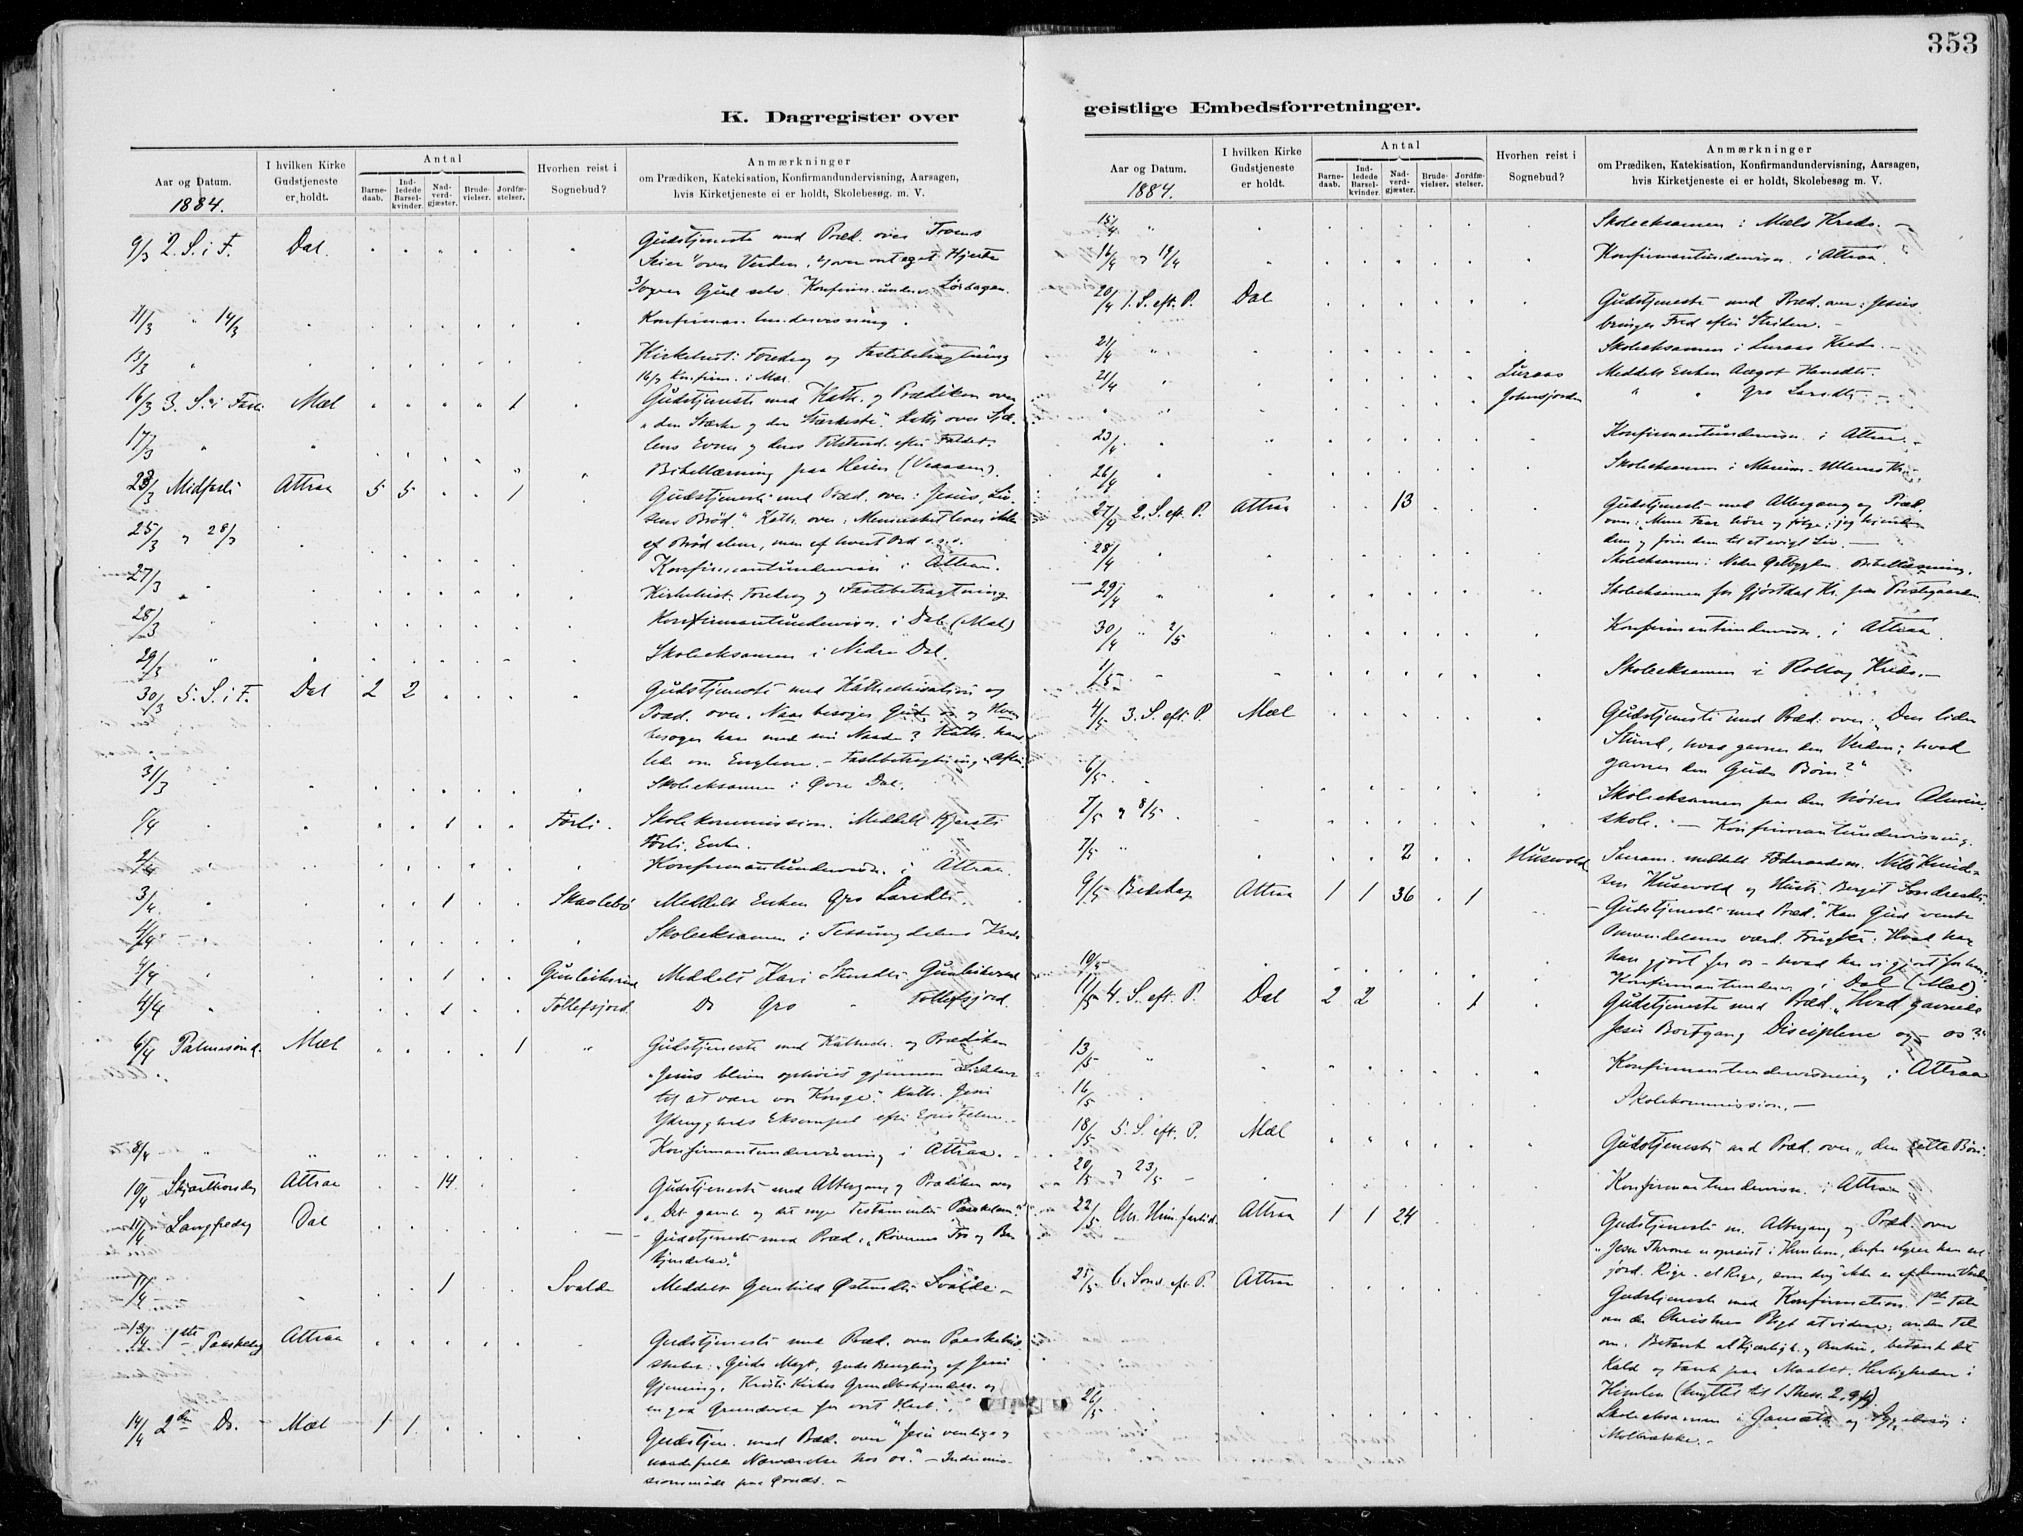 353
K. Dagregister over
Aar og Datum.
1884.
I hvilken Kirke Gudstjeneste er holdt.
Antal
Barne-daab.
Ind-ledede Barsel-kvinder.
Nad-verd-gjæster.
Brude-vielser.
Jordfæ-stelser.
Hvorhen reist i Sognebud?
Anmærkninger
om Prædiken, Katekisation, Konfirmandundervisning, Aarsagen,
hvis Kirketjeneste ei er holdt, Skolebesøg m. V.
9/3 2. S. i F. Dal. Gudstjeneste med Præd. over Troens
Seier over Verden,
Gud selv. Konfirm.underv. Lørdagen.
11/3 " 14/3 Konfirmantundervisning.
13/3 " Kirkehist. Foredrag og Fastebetragtning
16/3 Konfirm. i Mæl.
16/3 3. S. i Faste Mæl 1 Gudstjeneste med Kath. og Prædiken over
"den Stærke og den Stærkeste". Kath. over Sjæ-
lens Evner og dens Tilstand efter Faldet.
17/3 " Bibellæsning paa Heien (Vraasen).
23/3 Midfaste Attraa 5 5 1 Gudstjeneste med Præd. over: Jesus, Liv-
sens Brød." Kath. over: Mennesket lever ikke
af Brød alene, men af hvert Ord o.s.v.
25/3 og 28/3 Konfirmantundervisn. i Attraa.
27/3 " Kirkehist. Foredrag og Fastebetragtning
28/3 Konfirmantundervisn. i Dal (Mæl)
29/3 " Skoleeksamen i Nedre Dal.
30/3 5. S. i F. Dal 2 2 Gudstjeneste med Kathechisation og
Præd. over. Naar besøger Gud os og Hvem
besøger han med sin Naade? Kath. hand-
lede om Englene. - Fastebetragtning Aften.
31/3 " Skoleeksamen i Øvre Dal.
1/4 " 1 Førli. Skolekommission. Meddelt Kjersti
Førli, Enke.
2/4 " Konfirmantundervisn. i Attraa.
3/4 " 1 Skaalebø Meddelt Enken Gro Larsdtr.
4/4 " Skoleeksamen i Tessungdalens Kreds
4/4 " 1 Gunleiksrud Meddelt Kari Gunleiksrud
4/4 " 1 Tollefsjord. Do Gro " Tollefsjord.
6/4 Palmesønd. Mæl 1 " Gudstjeneste med Kathech. og Prædiken
"Jesus bliver ophøiet gjennem Lidelser
til at være vor Konge." Kath. Jesu
Ydmygheds Eksempel efter Epistelen.
8/4 " Konfirmantundervisning i Attraa.
10/4 Skjærthorsdag Attraa 14 Gudstjeneste med Altergang og Prædiken over
"Det gamle og det nye Testamentes Paaskelam."
11/4 Langfredag Dal Gudstjeneste med Præd. "Røverens Tro og Be-
kjendelse."
11/4 " 1 Svalde Meddelt Gunhild Østensdtr Svalde
13/4 1ste Paaskedag Attraa Gudstjeneste med Præd. over Paaskebud-
skabet: "Guds Magt, Guds af Jesu
Gjerning, Kristi Kirkes Grundbekjendelse og
en god Grundvold for vort Haab".
14/4 2den Do. Mæl 1 1 Gudstjen. med Præd. over "Jesu venlige og
naadefulde Nærværelse hos os". - Indremis-
sionsmøde paa
geistlige Embedsforretninger.
Aar og Datum.
1884.
I hvilken Kirke Gudstjeneste er holdt.
Antal
Barne-daab.
Ind-ledede Barsel-kvinder.
Nad-verd-gjæster.
Brude-vielser.
Jordfæ-stelser.
Hvorhen reist i Sognebud?
Anmærkninger
om Prædiken, Katekisation, Konfirmandundervisning, Aarsagen,
hvis Kirketjeneste ei er holdt, Skolebesøg m. V.
15/4 " Skoleeksamen i Mæls Kreds. -
16/4 og 19/4 Konfirmantundervisn. i Attraa.
20/4 1. S. eft. P. Dal Gudstjeneste med Præd. over: Jesus
bringer Fred efter Striden. -
21/4 " Skoleeksamen i Luraas Kreds. -
21/4 Luraas Meddelt Enken Aagot Hansdtr.
" Johnsjorden " " Gro Larsdtr. -
23/4 " Konfirmantundervisn. i Attraa. -
26/4 " Skoleeksamen i
27/4 2. S. eft. P. Attraa 13 Gudstjeneste med Altergang og Præd.
over: Mine Faar høre og følge; jeg kjender
dem og giver dem til et evigt Liv. -
28/4 " Skoleeksamen i Nedre Bibellæsning.
29/4 " Skoleeksamen for Gjøstdal Kr. paa Prestegaarden.
30/4 " 2/5 Konfirmantundervisn. i Attraa.
1/5 " Skoleeksamen i Rollag Kreds. -
4/5 3. S. eft. P. Mæl Gudstjeneste med Præd. over: Den liden
Stund, hvad gavner den Verden; hvad
gavner den Guds Børn?"
6/5 " Skoleeksamen paa den høiere Almue-
skole. -
7/5 og 8/5 Konfirmantundervisning.
7/5 " 2 Husevold Sacram. meddelt Føderaadsm. Nils Knud-
sen Husevold og Hustr. Berget Sondresdtr.
9/5 Bededag Attraa 1 1 36 1 - Gudstjeneste med Præd. "Kan Gud vente
Omvendelsens værd. Frugter: Hvad har
han gjort for os - hvad har vi gjort for ham."
10/5 Konfirmantunderv. i Dal (Mæl)
11/5 4. S. eft. P. Dal 2 2 1 Gudstjeneste med Præd. "Hvad gavnede
Jesu Bortgang Disciplene og os?"
13/5 " Konfirmantundervisning i Attraa
16/5 Skolekommission. -
18/5 5. S. eft. P. Mæl Gudstjeneste med Præd. over "den rette Bøn".
20/5 og 23/5 Konfirmantundervisn. i Attraa
22/5 Chr. Himmelfartsd. Attraa 1 1 24 Gudstjeneste m. Altergang og Præd. over
"Jesu Throne er opreist i Himlen, derfra styrer han sit
jord. Rige - et Rige, som dog ikke er af denne Verden"
25/5 6. Sønd. eft. P. Attraa Gudstjeneste med Konfirmation. 1ste Tale
om den Christnes Pligt at vidne; anden Tale
om:
Kald og Fæst paa Maalet, Herligheden i
Himlen (knyttet til 1 Thess. 2,
26/5 Skoleeksamen i Gauseta og Sygebesøg i